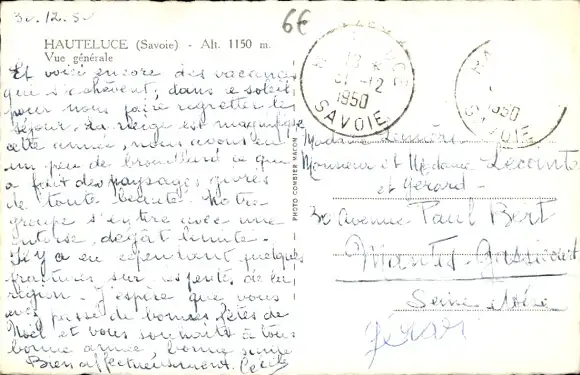 30.12.50
6€
HAUTELUCE (Savoie) - Alt. 1150 m.
Vue générale
Et voici encore des vacances
qui s'achèvent, dans le soleil
pour nous faire regretter le
séjour. La neige est magnifique
cette année, nous avons eu
un peu de brouillard ce qui
a fait des paysages givrés
de toute beauté. Notre
groupe s'entre avec une
intense,
Il y a eu cependant quelques
fractures sur les pentes de la
région. J'espère que vous
avez passé de bonnes fêtes de
Noël et vous souhaite à tous
bonne année, bonne santé
Bien affectueusement. Cécile
PHOTO COMBIER MACON
31-12
1950
SAVOIE
1950
SAVOIE
Madame
Monsieur et Madame Lecomte
et Gérard
30 Avenue Paul Bert
Mantes-Gassicourt
Seine et Oise